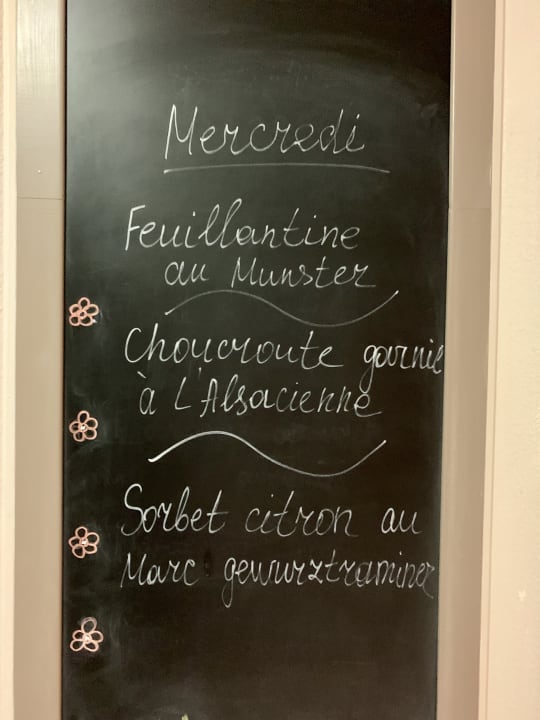 Mercredi
Feuillantine
au Munster
Choucroute garnie
à L'Alsacienne
Sorbet citron au
Marc gewurztraminer